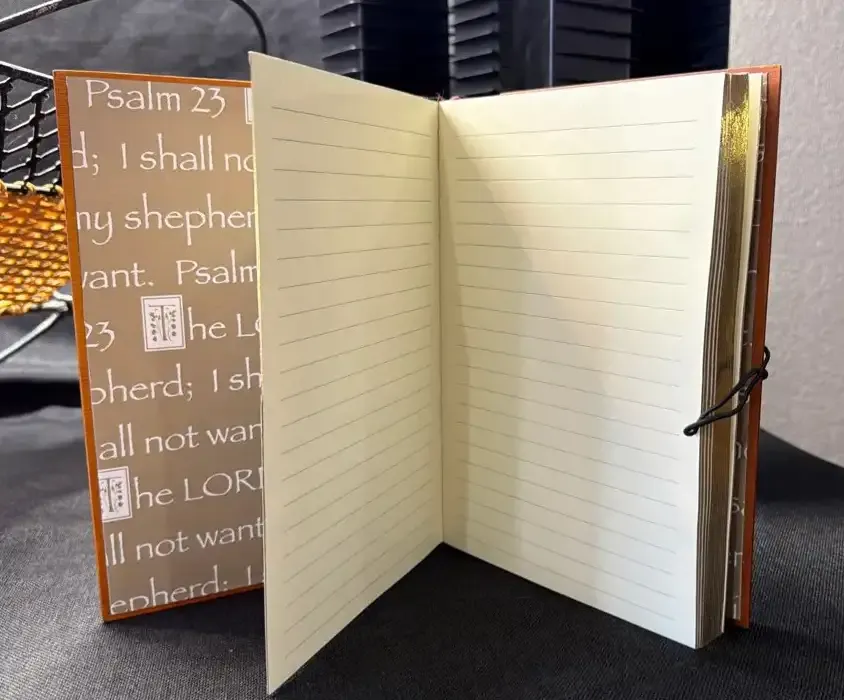 Psalm 23
d; I shall no
my shepher
want. Psalm
23 The LO
pherd; I sh
all not wan
The LORD
ll not want
epherd; I